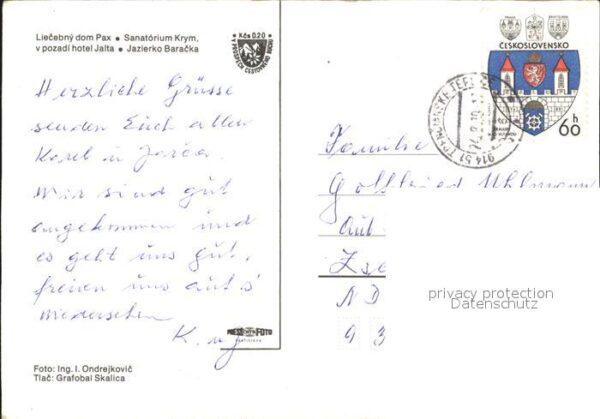 Liečebný dom Pax • Sanatórium Krym,
v pozadí hotel Jalta • Jazierko Baračka
Kčs 0.20
V PROSPECH CESTOVNÉHO RUCHU
ČESKOSLOVENSKO
60 h
914 51 TRENČIANSKE TEPLICE
Herzliche Grüsse
senden Euch allen
Karel u.
Wir sind gut
angekommen und
es geht uns gut,
freuen uns aufs
Wiedersehen
K. u
Familie
Gottfried Uhlmann
N D
9 3
privacy protection
Datenschutz
PRESSFOTO
BRATISLAVA
Foto: Ing. I. Ondrejkovič
Tlač: Grafobal Skalica